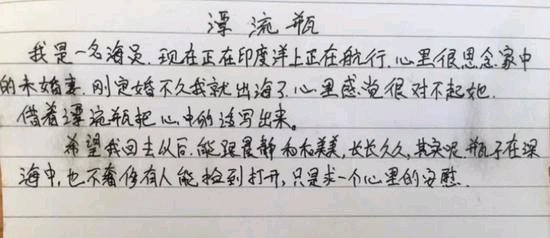 漂流瓶
我是一名海员,现在正在印度洋上正在航行.心里很思念家中
的未婚妻.刚定婚不久我就出海了.心里感觉很对不起她.
借着漂流瓶把心中的话写出来。
希望我回去以后.能跟晨静和和美美,长长久久,其实呢.瓶子在深
海中,也不奢侈有人能捡到打开,只是求一个心里的安慰.